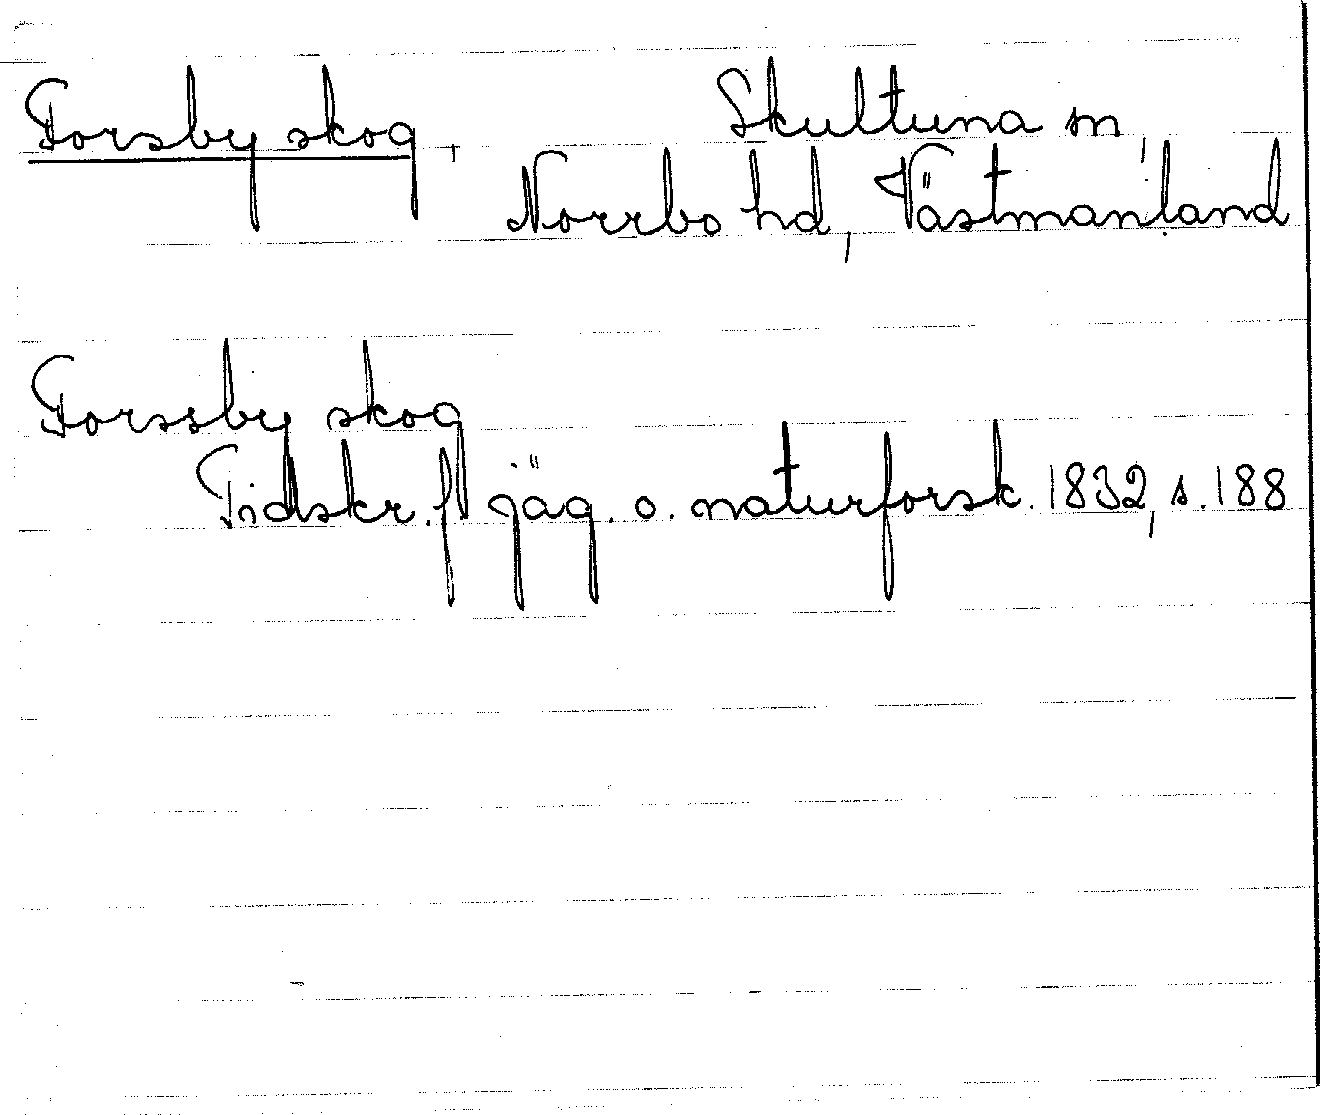 Forsby skog, Skultuna sn,
Norrbo hd, Västmanland
Forssby skog
Tidskr. f. jäg. o. naturforsk. 1832, s. 188